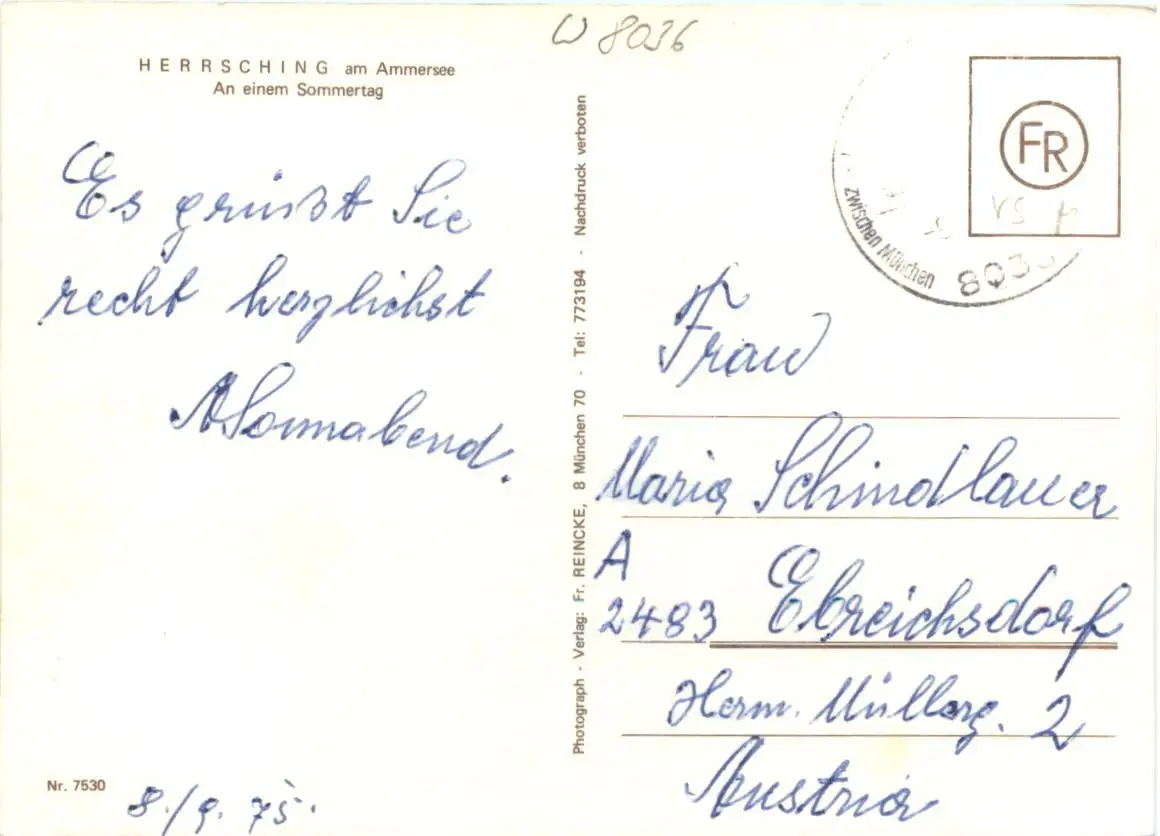 W 8036
HERRSCHING am Ammersee
An einem Sommertag
Es grüßt Sie
recht herzlichst
Sonnabend.
Nr. 7530
8./9. 75.
Photograph - Verlag: Fr. REINCKE, 8 München 70 - Tel: 773194 - Nachdruck verboten
FR
zwischen München
8036
Frau
Maria Schindlauer
A
2483 Ebreichsdorf
Herm. Müllerg. 2
Austria